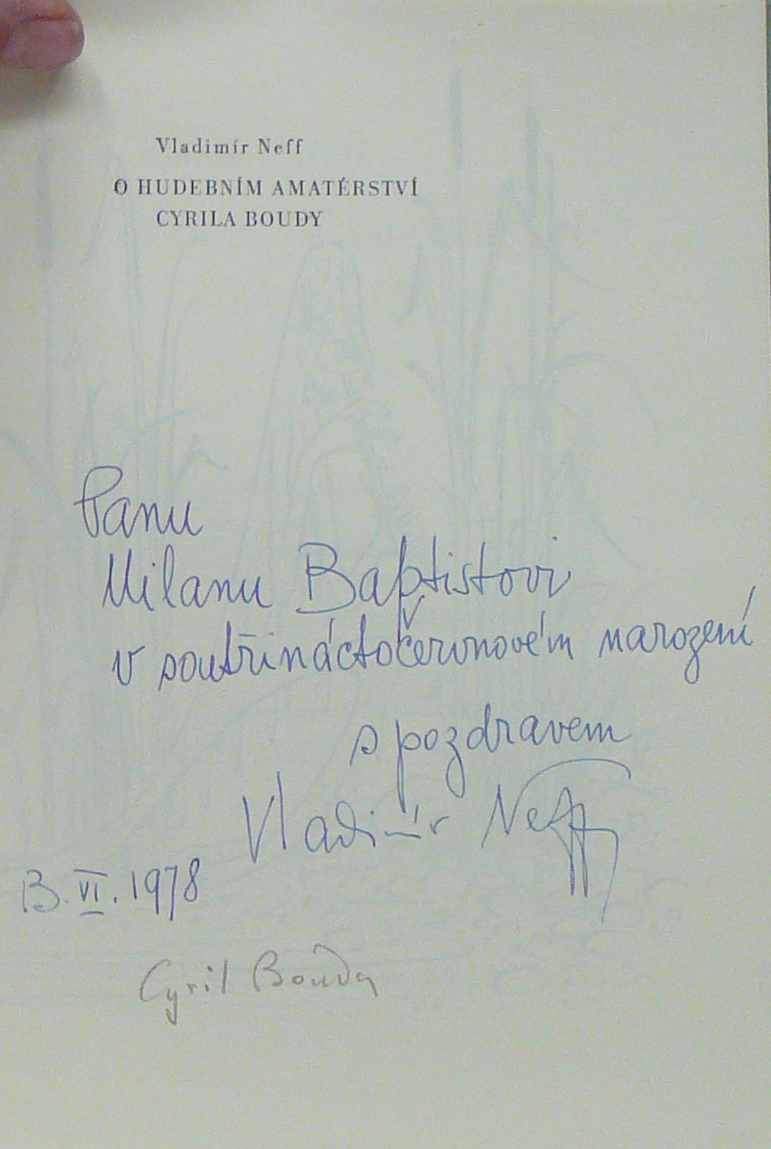 Vladimír Neff
O HUDEBNÍM AMATÉRSTVÍ
CYRILA BOUDY
Panu
Milanu Baptistovi
v soutřináctočervnovém narození
s pozdravem
Vladimír Neff
13. VI. 1978
Cyril Bouda